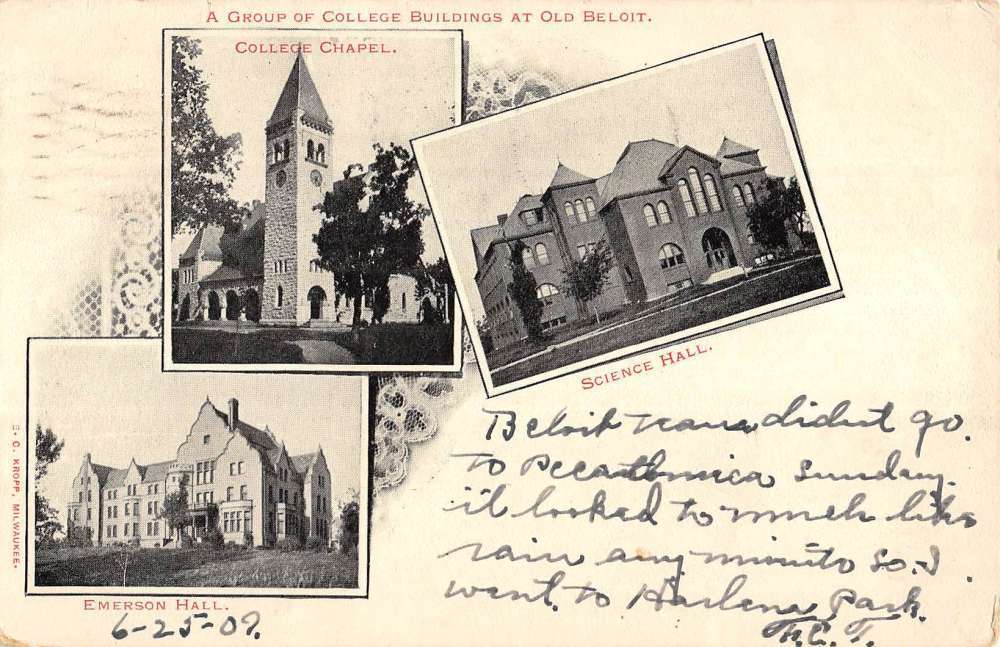 A GROUP OF COLLEGE BUILDINGS AT OLD BELOIT.
COLLEGE CHAPEL.
SCIENCE HALL.
E. C. KROPP, MILWAUKEE.
EMERSON HALL.
6-25-07.
Beloit didnt go.
to Pecatonica Sunday.
it looked to much like
rain any minuto so I
went to Harlem Park.
F.C.T.